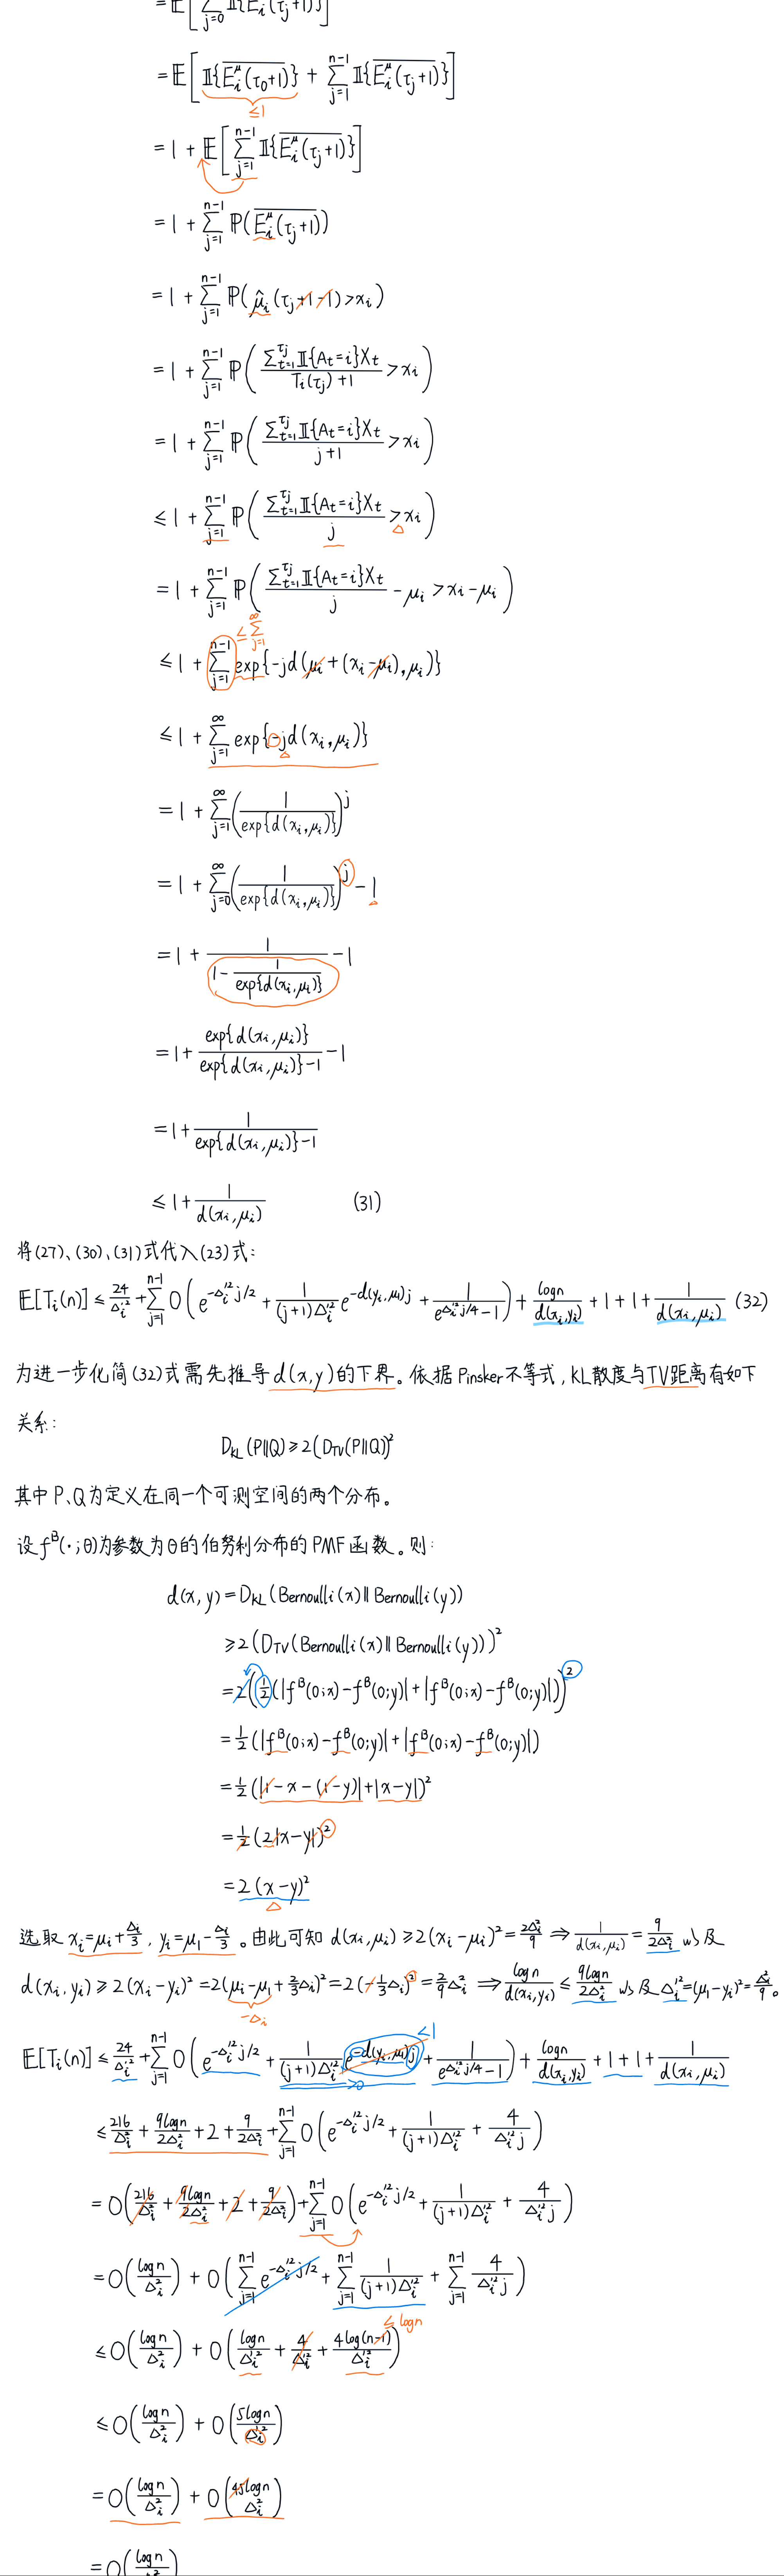 = 𝔼[∑_{j=0}^{n-1} 𝕀{\overline{E_i^μ(τ_j+1)}}]
= 𝔼[𝕀{\overline{E_i^μ(τ_0+1)}} + ∑_{j=1}^{n-1} 𝕀{\overline{E_i^μ(τ_j+1)}}]
≤1
= 1 + 𝔼[∑_{j=1}^{n-1} 𝕀{\overline{E_i^μ(τ_j+1)}}]
= 1 + ∑_{j=1}^{n-1} ℙ(\overline{E_i^μ(τ_j+1)})
= 1 + ∑_{j=1}^{n-1} ℙ(\hat{μ}_i(τ_j+1-1)>x_i)
= 1 + ∑_{j=1}^{n-1} ℙ(\frac{∑_{t=1}^{τ_j} 𝕀{A_t=i}X_t}{T_i(τ_j)+1} > x_i)
= 1 + ∑_{j=1}^{n-1} ℙ(\frac{∑_{t=1}^{τ_j} 𝕀{A_t=i}X_t}{j+1} > x_i)
≤ 1 + ∑_{j=1}^{n-1} ℙ(\frac{∑_{t=1}^{τ_j} 𝕀{A_t=i}X_t}{j} > x_i)
= 1 + ∑_{j=1}^{n-1} ℙ(\frac{∑_{t=1}^{τ_j} 𝕀{A_t=i}X_t}{j} - μ_i > x_i-μ_i)
≤ ∑_{j=1}^{∞}
≤ 1 + ∑_{j=1}^{n-1} exp{-jd(μ_i+(x_i-μ_i),μ_i)}
≤ 1 + ∑_{j=1}^{∞} exp{-jd(x_i,μ_i)}
= 1 + ∑_{j=1}^{∞} (\frac{1}{exp{d(x_i,μ_i)}})^j
= 1 + ∑_{j=0}^{∞} (\frac{1}{exp{d(x_i,μ_i)}})^j - 1
= 1 + \frac{1}{1-\frac{1}{exp{d(x_i,μ_i)}}} - 1
= 1 + \frac{exp{d(x_i,μ_i)}}{exp{d(x_i,μ_i)}-1} - 1
= 1 + \frac{1}{exp{d(x_i,μ_i)}-1}
≤ 1 + \frac{1}{d(x_i,μ_i)} (31)
将(27)、(30)、(31)式代入(23)式:
𝔼[T_i(n)] ≤ \frac{24}{Δ_i'^2} + ∑_{j=1}^{n-1} O(e^{-Δ_i'^2 j/2} + \frac{1}{(j+1)Δ_i'^2} e^{-d(y_i,μ_1)j} + \frac{1}{e^{Δ_i'^2 j/4}-1}) + \frac{logn}{d(x_i,y_i)} + 1 + 1 + \frac{1}{d(x_i,μ_i)} (32)
为进一步化简(32)式需先推导d(x,y)的下界。依据Pinsker不等式,KL散度与TV距离有如下
关系:
D_{KL}(P||Q) ≥ 2(D_{TV}(P||Q))^2
其中P、Q为定义在同一个可测空间的两个分布。
设f^B(·;θ)为参数为θ的伯努利分布的PMF函数。则:
d(x,y) = D_{KL}(Bernoulli(x)||Bernoulli(y))
≥ 2(D_{TV}(Bernoulli(x)||Bernoulli(y)))^2
= 2(\frac{1}{2}(|f^B(0;x)-f^B(0;y)|+|f^B(0;x)-f^B(0;y)|))^2
= \frac{1}{2}(|f^B(0;x)-f^B(0;y)|+|f^B(0;x)-f^B(0;y)|)
= \frac{1}{2}(|1-x-(1-y)|+|x-y|)^2
= \frac{1}{2}(2|x-y|)^2
= 2(x-y)^2
选取x_i=μ_i+\frac{Δ_i}{3}, y_i=μ_1-\frac{Δ_i}{3}。由此可知 d(x_i,μ_i) ≥ 2(x_i-μ_i)^2 = \frac{2Δ_i^2}{9} ⇒ \frac{1}{d(x_i,μ_i)} = \frac{9}{2Δ_i^2} 以及
d(x_i,y_i) ≥ 2(x_i-y_i)^2 = 2(μ_i-μ_1+\frac{2}{3}Δ_i)^2 = 2(-\frac{1}{3}Δ_i)^2 = \frac{2}{9}Δ_i^2 ⇒ \frac{logn}{d(x_i,y_i)} ≤ \frac{9logn}{2Δ_i^2} 以及Δ_i'^2=(μ_1-y_i)^2=\frac{Δ_i^2}{9}。
-Δ_i
≤1
𝔼[T_i(n)] ≤ \frac{24}{Δ_i'^2} + ∑_{j=1}^{n-1} O(e^{-Δ_i'^2 j/2} + \frac{1}{(j+1)Δ_i'^2} e^{-d(y_i,μ_1)j} + \frac{1}{e^{Δ_i'^2 j/4}-1}) + \frac{logn}{d(x_i,y_i)} + 1 + 1 + \frac{1}{d(x_i,μ_i)}
>0
≤ \frac{216}{Δ_i^2} + \frac{9logn}{2Δ_i^2} + 2 + \frac{9}{2Δ_i^2} + ∑_{j=1}^{n-1} O(e^{-Δ_i'^2 j/2} + \frac{1}{(j+1)Δ_i'^2} + \frac{4}{Δ_i'^2 j})
= O(\frac{216}{Δ_i^2} + \frac{9logn}{2Δ_i^2} + 2 + \frac{9}{2Δ_i^2}) + ∑_{j=1}^{n-1} O(e^{-Δ_i'^2 j/2} + \frac{1}{(j+1)Δ_i'^2} + \frac{4}{Δ_i'^2 j})
= O(\frac{logn}{Δ_i^2}) + O(∑_{j=1}^{n-1} e^{-Δ_i'^2 j/2} + ∑_{j=1}^{n-1} \frac{1}{(j+1)Δ_i'^2} + ∑_{j=1}^{n-1} \frac{4}{Δ_i'^2 j})
≤ logn
≤ O(\frac{logn}{Δ_i^2}) + O(\frac{logn}{Δ_i'^2} + \frac{4}{Δ_i'^2} + \frac{4log(n-1)}{Δ_i'^2})
≤ O(\frac{logn}{Δ_i^2}) + O(\frac{5logn}{Δ_i'^2})
= O(\frac{logn}{Δ_i^2}) + O(\frac{45logn}{Δ_i^2})
= O(\frac{logn}{Δ_i^2})